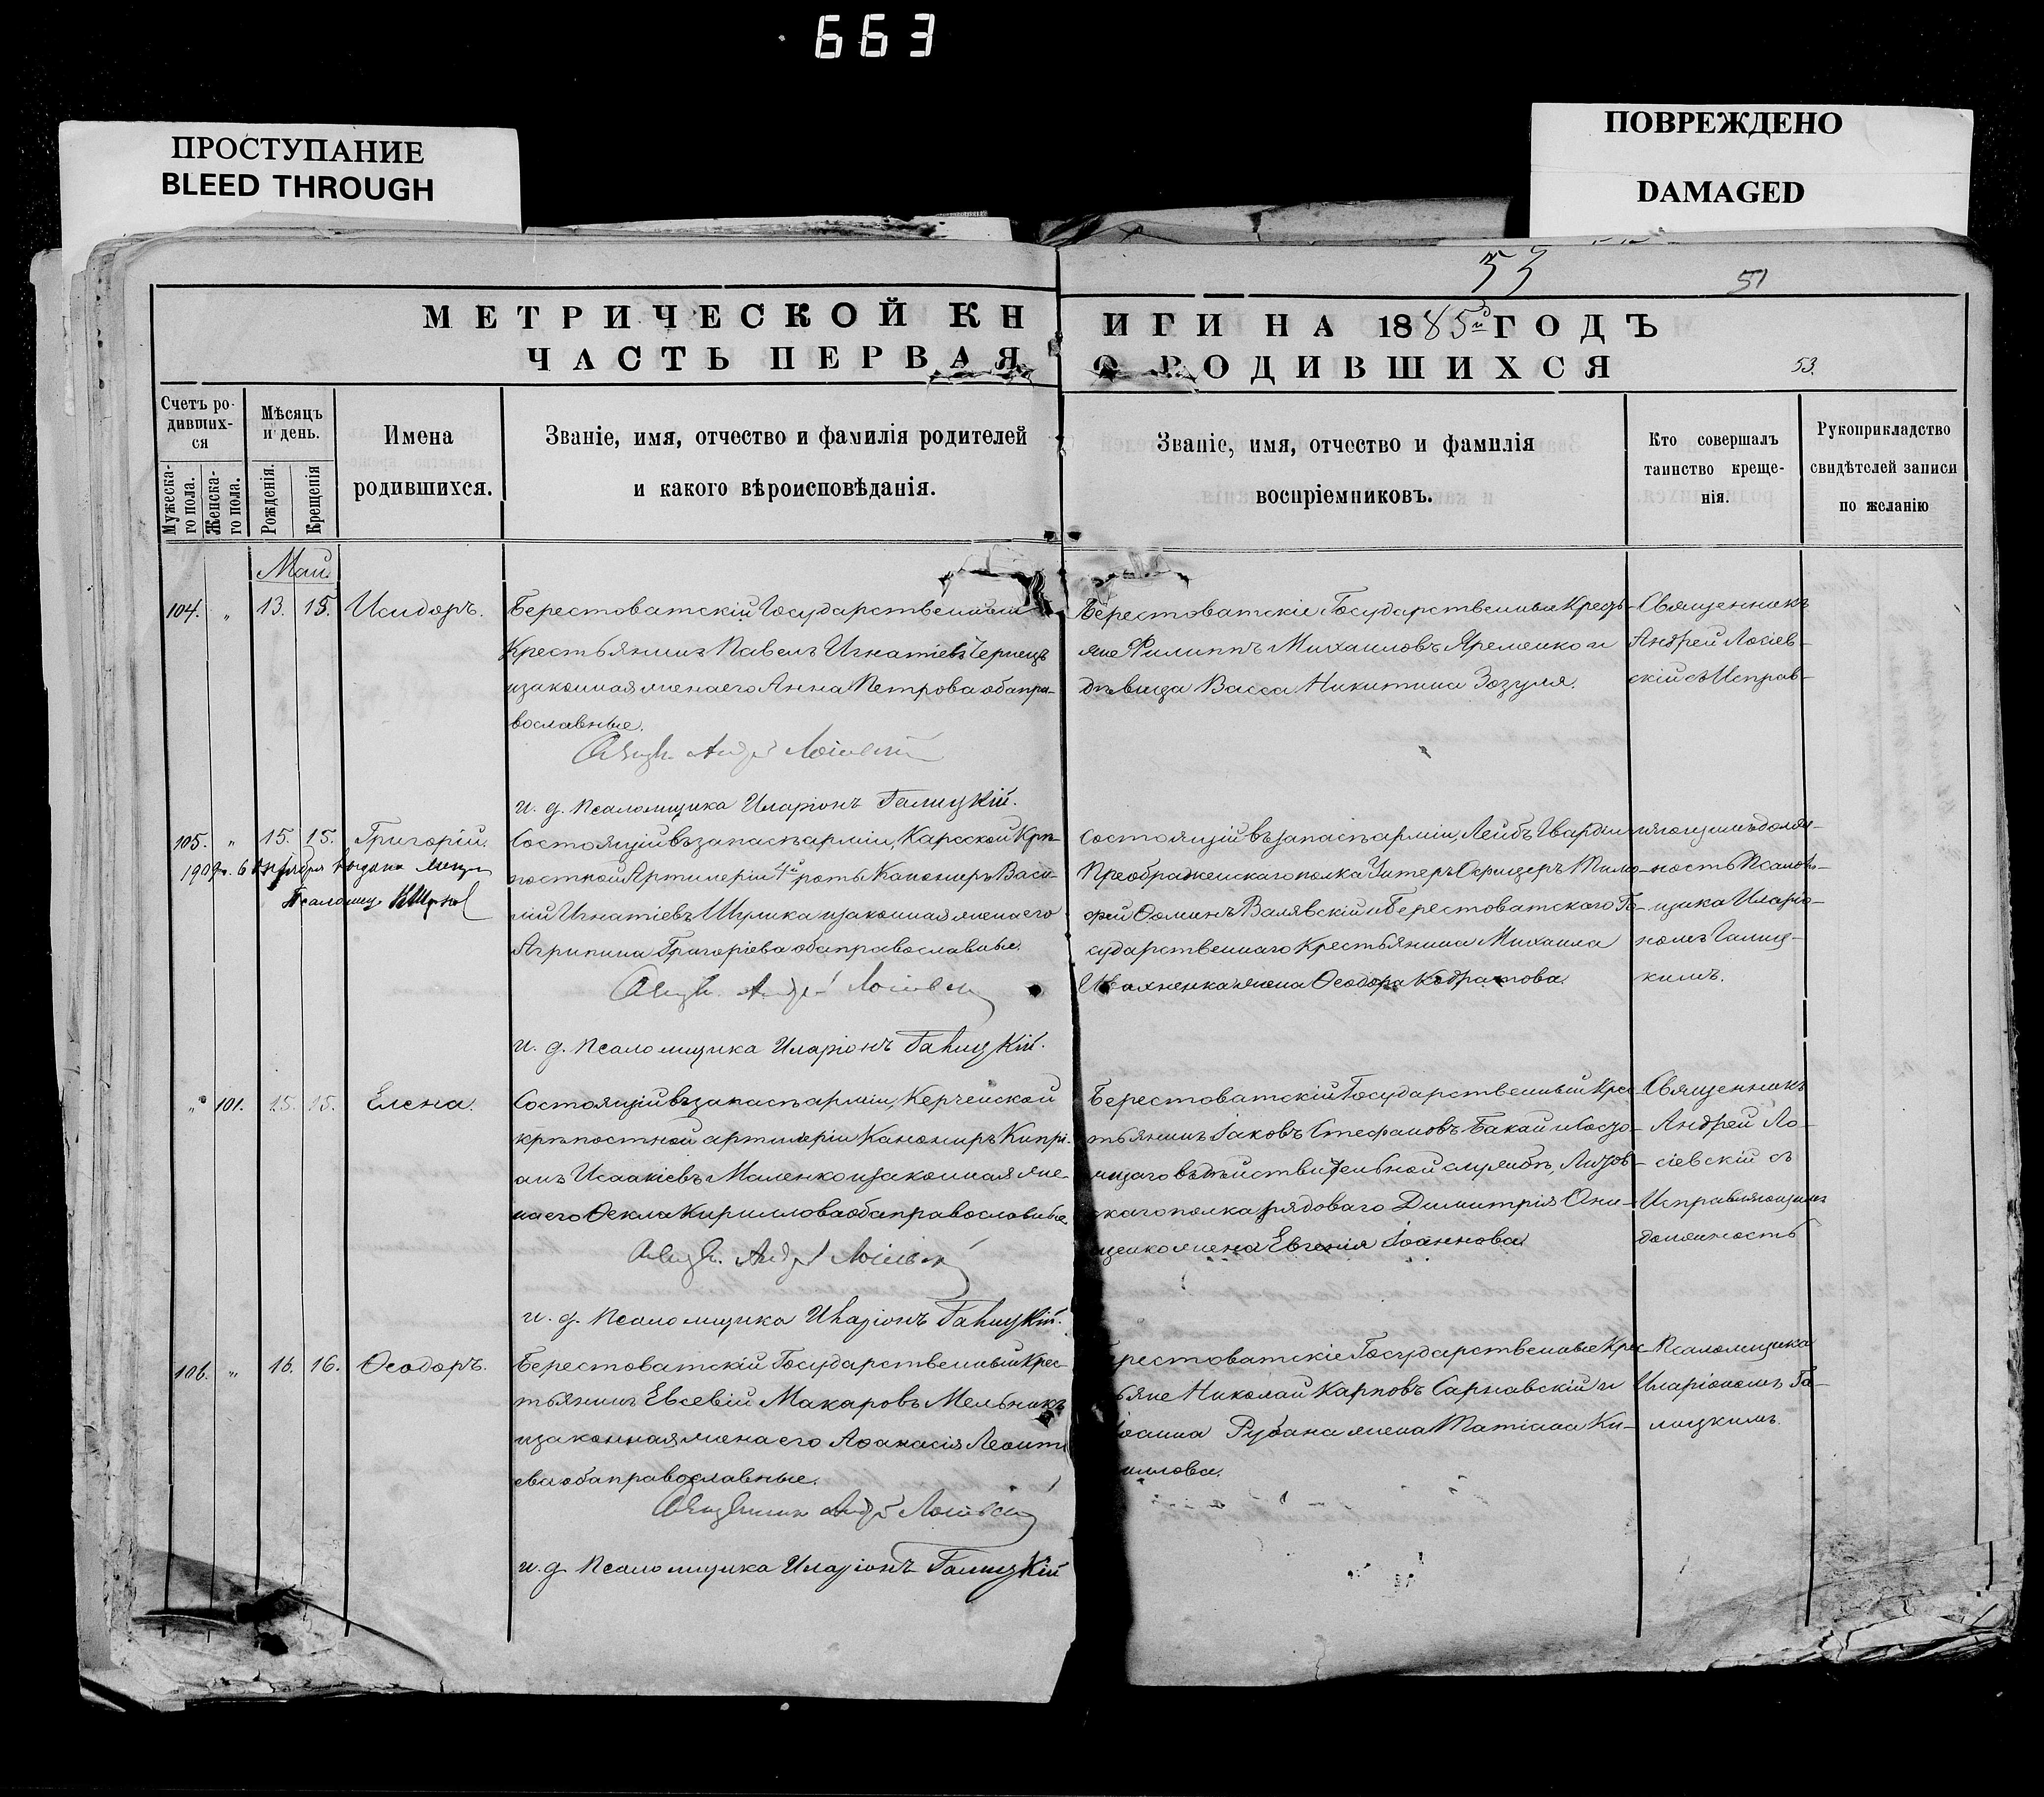 663
ПРОСТУПАНИЕ
BLEED THROUGH
ПОВРЕЖДЕНО
DAMAGED
53
51
МЕТРИЧЕСКОЙ КНИГИ НА 1885й ГОДЪ
ЧАСТЬ ПЕРВАЯ О РОДИВШИХСЯ
53.
Счетъ ро-
дивших-
ся
Мужеска-
го пола.
Женска-
го пола.
Мѣсяцъ
и день.
Рожденія.
Крещенія
Имена
родившихся.
Званіе, имя, отчество и фамилія родителей
и какого вѣроисповѣданія.
Званіе, имя, отчество и фамилія
воспріемниковъ.
Кто совершалъ
таинство креще-
нія.
Рукоприкладство
свидѣтелей записи
по желанію
Май.
104. „ 13. 15. Исидоръ.
Берестоватскій Государственный
Крестьянинъ Павелъ Игнатіевъ Чернецъ
и законная жена его Анна Петрова оба пра-
вославные.
Андр
и. д. Псаломщика Иларіонъ Галицкій.
Берестоватскіе Государственные Кресть-
яне Филиппъ Михаиловъ Яременко и
дѣвица Васса Никитина Зозуля.
Священникъ
Андрей Лосіев-
скій съ Исправ-
105. „ 15. 15. Григорій.
6 Ноября выдана
Псаломщ
Состоящій въ запасѣ арміи, Карсской Крѣ-
постной Артилеріи 4й роты Канониръ Васи-
лій Игнатіевъ Шулика и законная жена его
Агрипина Григоріева оба православные.
и. д. Псаломщика Иларіонъ Галицкій.
Состоящій въ запасѣ арміи, Лейбъ Гвардіи
Преображенскаго полка Унтеръ Офицеръ Тимо-
фей Фоминъ Валявскій и Берестоватскаго Го-
сударственнаго Крестьянина Михаила
жена Ѳеодора Кодратова.
ляющимъ долж-
ность Псалом-
щика Иларіо-
номъ Галиц-
кимъ.
„ 101. 15. 15. Елена.
Состоящій въ запасѣ арміи, Керченской
крѣпостной артилеріи Канониръ Кипрі-
анъ Исаакіевъ Маленко и законная же-
на его Ѳекла Кириллова оба православные.
и. д. Псаломщика Иларіонъ Галицкій.
Берестоватскій Государственный Крес-
тьянинъ Іаковъ Стефановъ Бакай и Состо-
ящаго въ дѣйствительной службѣ,
скаго полка рядоваго Димитрія Они-
щенко жена Евгенія Іоаннова.
Священникъ
Андрей Ло-
сіевскій съ
Исправляющимъ
должность
106. „ 16. 16. Ѳеодоръ.
Берестоватскій Государственный Крес-
тьянинъ Евсевій Макаровъ Мельникъ
и законная жена его Аѳанасія Леонти
ева оба православные.
Священникъ
и. д. Псаломщика Иларіонъ Галицкій
рестоватскіе Государственные Крес-
ьяне Николай Карповъ Сарнавскій и
оанна Рубана жена Татіана Ки-
иллова.
Псаломщика
Иларіономъ Га-
лицкимъ.